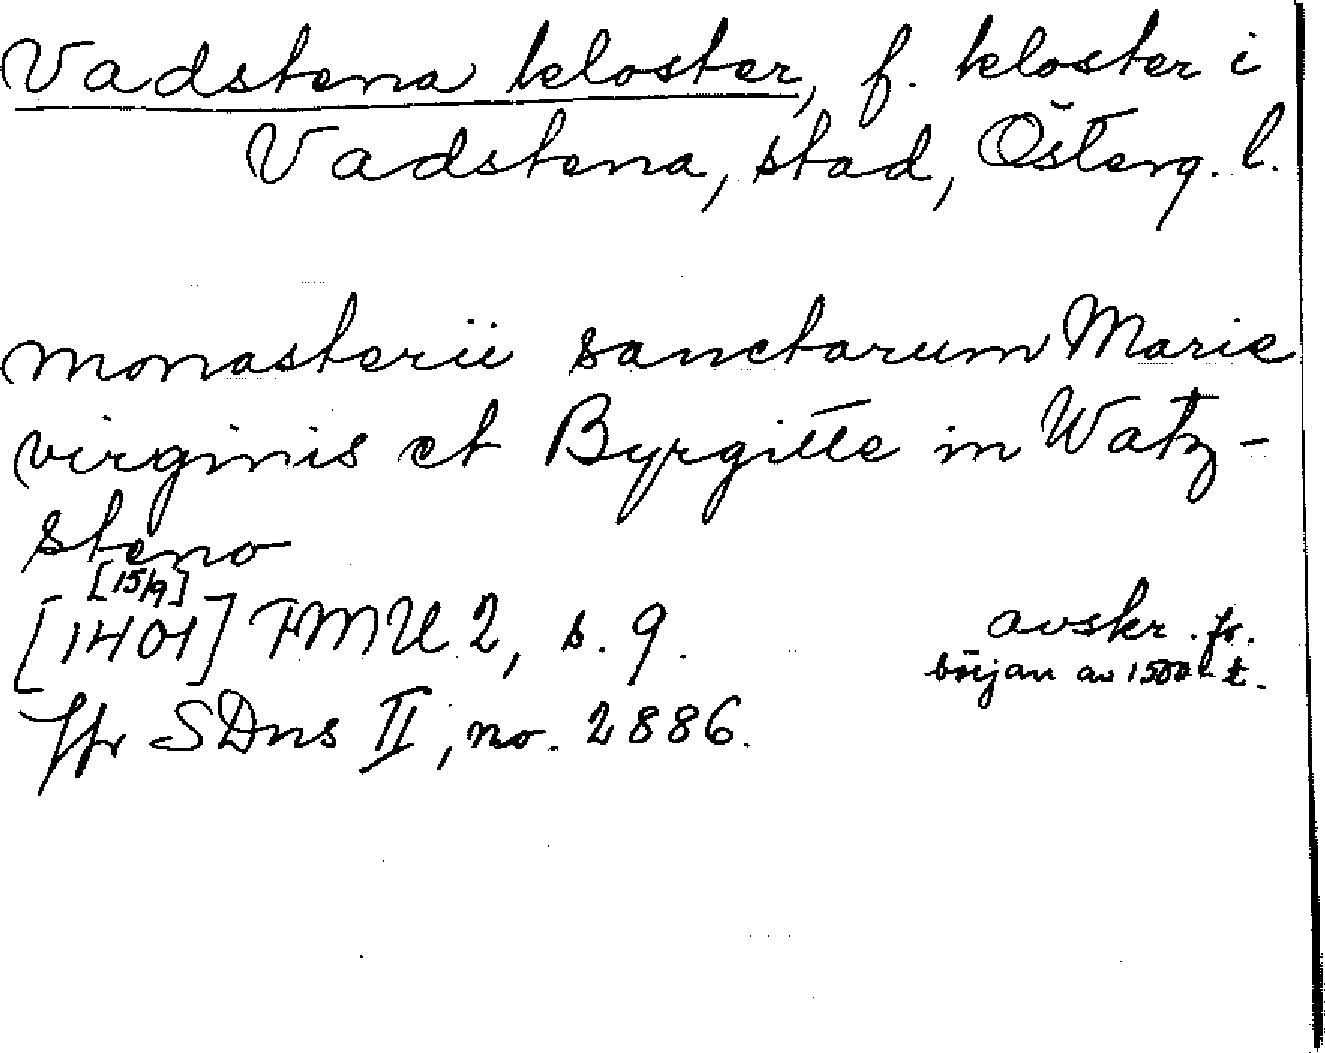 Vadstena kloster, f. kloster i
Vadstena, stad, Österg. l.
monasterii sanctarum Marie
virginis et Byrgitte in Watz-
steno
[15/9]
[1401] FMU 2, s. 9.
avskr. fr.
början av 1500-t.
Jfr SDns II, no. 2886.